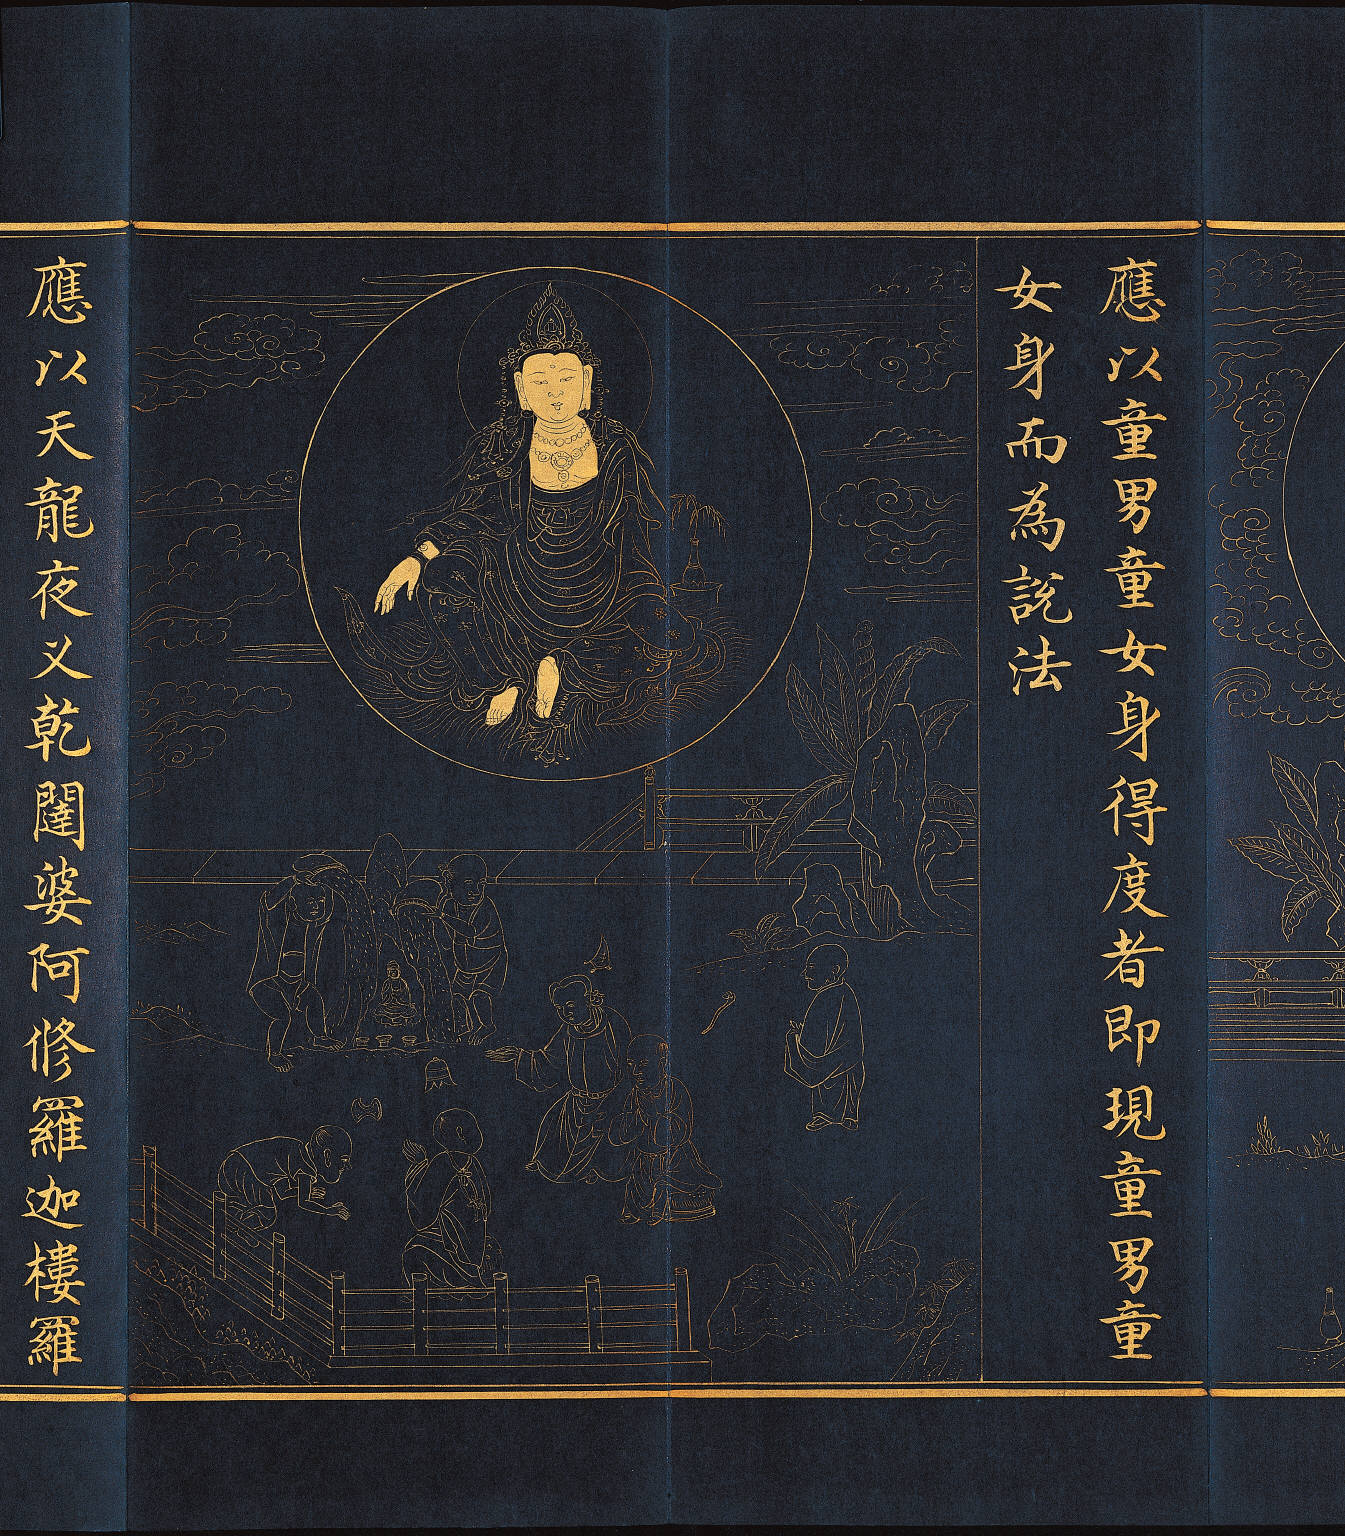 應以童男童女身得度者即現童男童
女身而為說法
應以天龍夜义乾闥婆阿修羅迦樓羅